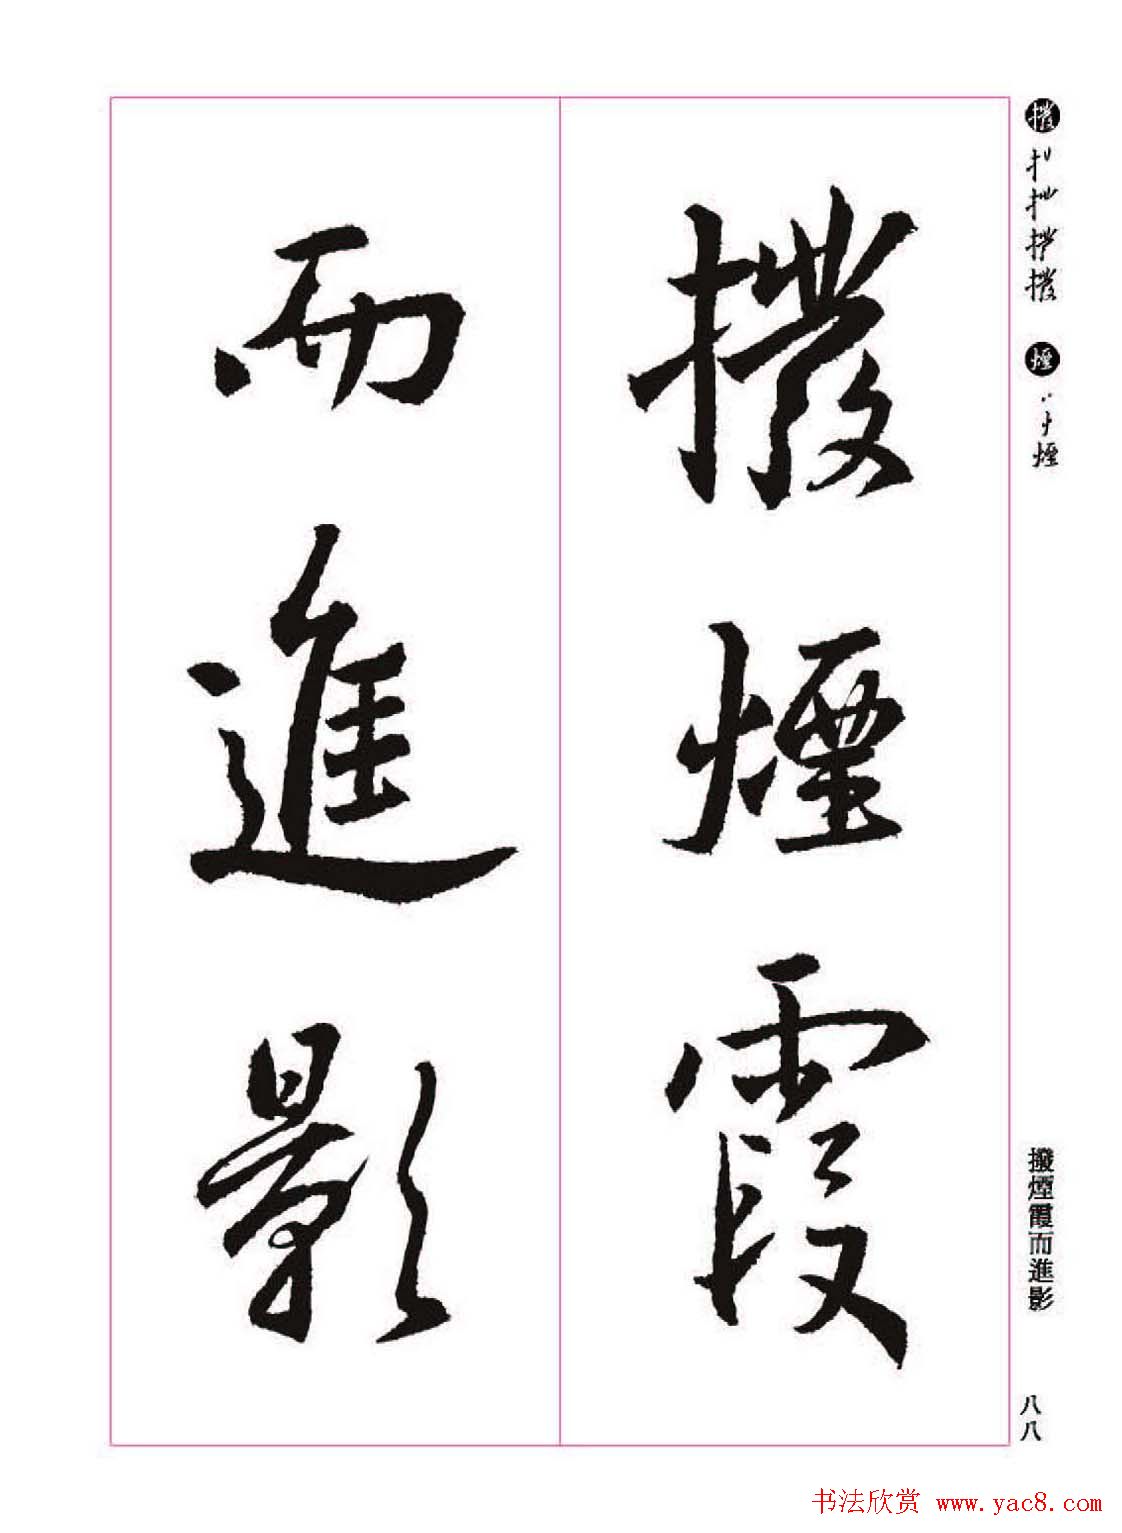 撥煙霞
而進影
撥
煙
撥煙霞而進影
八八
书法欣赏 www.yac8.com